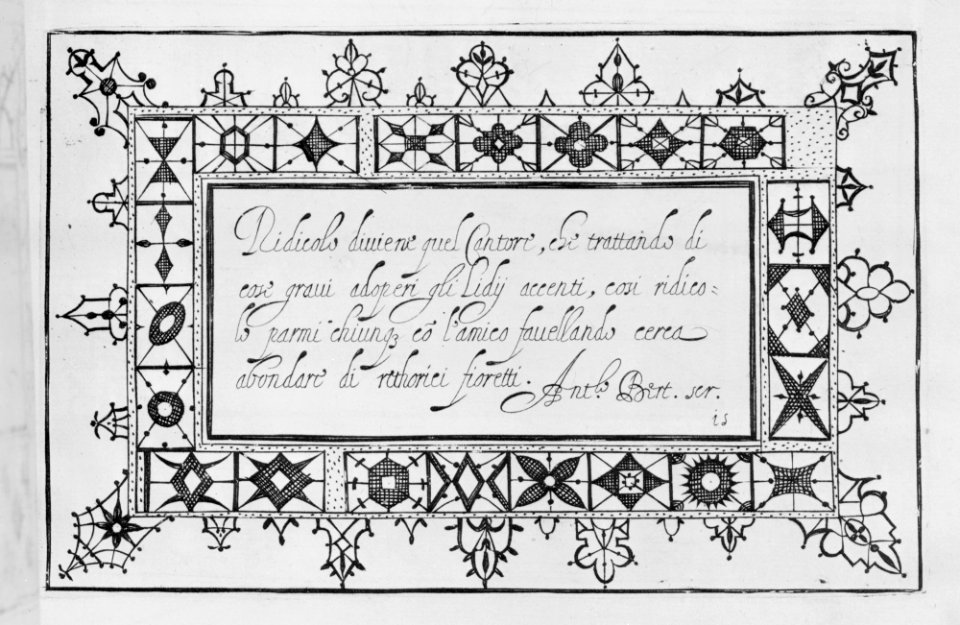 Ridicolo diuiene quel Cantore, che trattando di
cose graui adoperi gli Lidij accenti, cosi ridico=
lo parmi chiunqȝ cō l'amico fauellando cerca
abondare di rethorici fioretti. Ant.º Bert. scr.
is